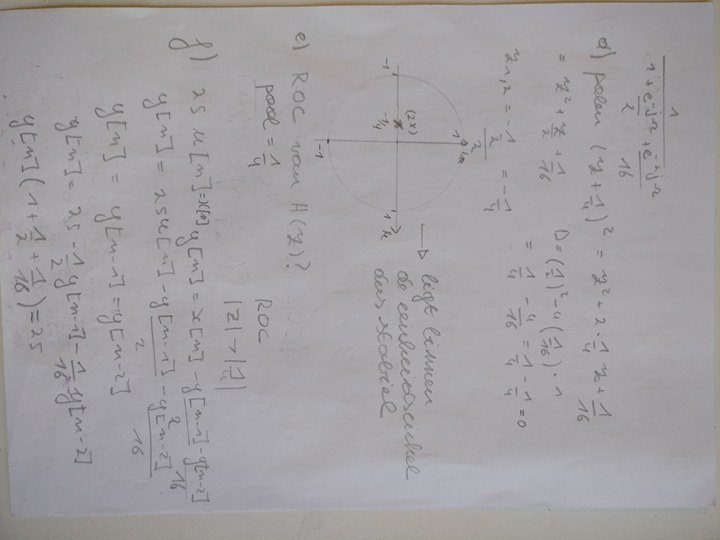 1
1 + e^-jΩ/2 + e^-2jΩ/16
d) polen (z + 1/4)² = z² + 2·1/4 z + 1/16
= z² + z/2 + 1/16 D = (1/2)² - 4(1/16)·1
= 1/4 - 4/16 = 1/4 - 1/4 = 0
z1,2 = -1/2 / 2 = -1/4
Im
1
(2x)
-1
-1/4
1
-1
→ ligt binnen
de eenheidscirkel
dus stabiel
e) ROC van H(z)?
pool = 1/4
ROC
|z| > |1/4|
f) 25 u[n] = x[n] y[n] = x[n] - y[n-1]/2 - y[n-2]/16
y[n] = 25u[n] - y[n-1]/2 - y[n-2]/16
y[n] = y[n-1] = y[n-2]
y[n] = 25 - 1/2 y[n-1] - 1/16 y[n-2]
y[n] (1 + 1/2 + 1/16) = 25